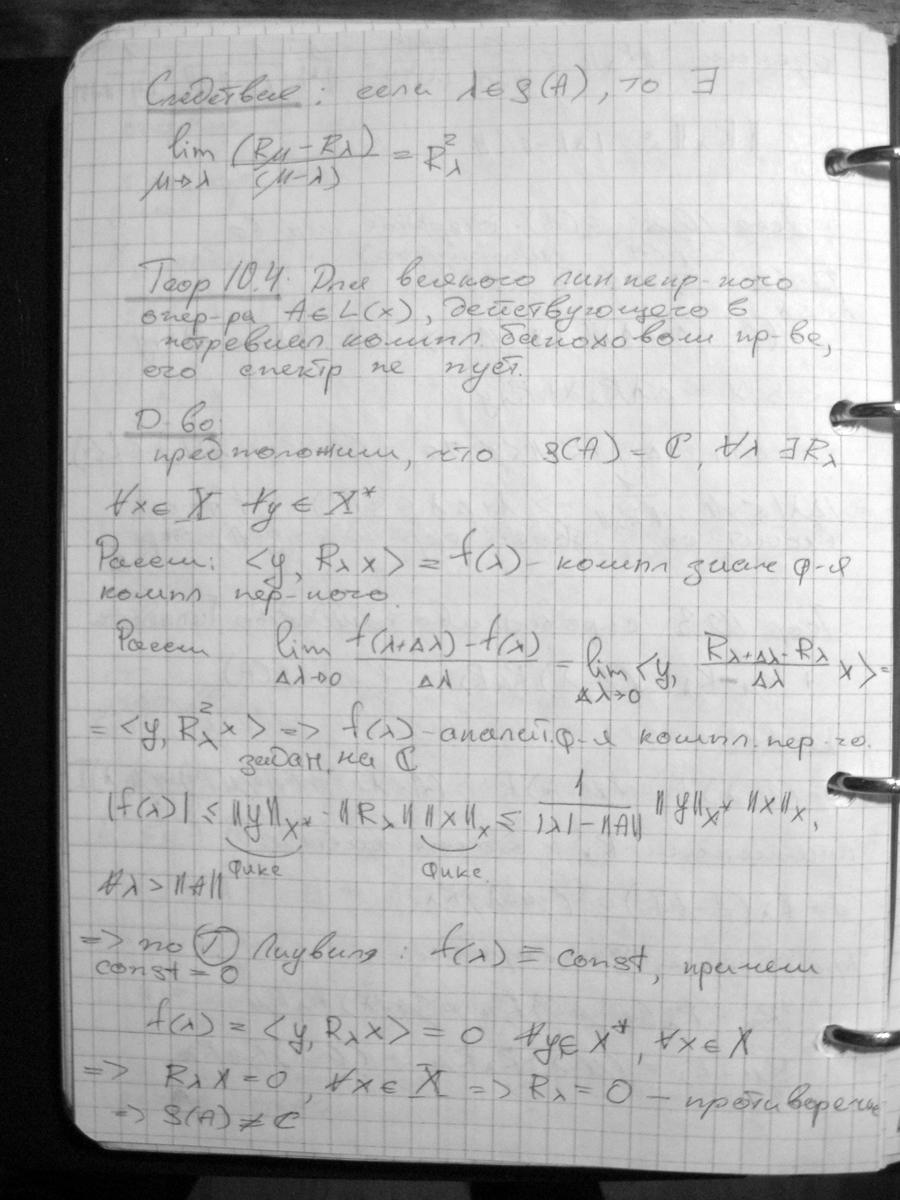 Следствие: если λ∈ρ(A), то ∃
lim μ→λ (Rμ − Rλ)/(μ−λ) = Rλ²
Теор 10.4. Для всякого лин непр-ного
опер-ра A∈L(X), действующего в
нетривиал компл банаховом пр-ве,
его спектр не пуст.
Д-во
предположим, что ρ(A) = ℂ, ∀λ ∃Rλ
∀x∈X ∀y∈X*
Рассм: <y, Rλ x> = f(λ) - компл знач ф-я
компл пер-ного.
Рассм lim Δλ→0 (f(λ+Δλ) − f(λ))/Δλ = lim Δλ→0 <y, (Rλ+Δλ − Rλ)/Δλ x> =
= <y, Rλ² x> => f(λ) - аналит. ф-я компл. пер-го.
задан. на ℂ
|f(λ)| ≤ ‖y‖X* · ‖Rλ‖ ‖x‖X ≤ 1/(|λ| − ‖A‖) ‖y‖X* ‖x‖X,
фикс фикс.
∀λ > ‖A‖
=> по Т Лиувиля : f(λ) ≡ const, причем
const = 0
f(λ) = <y, Rλ x> = 0 ∀y∈X*, ∀x∈X
=> Rλ x = 0, ∀x∈X => Rλ = 0 — противоречие
=> ρ(A) ≠ ℂ